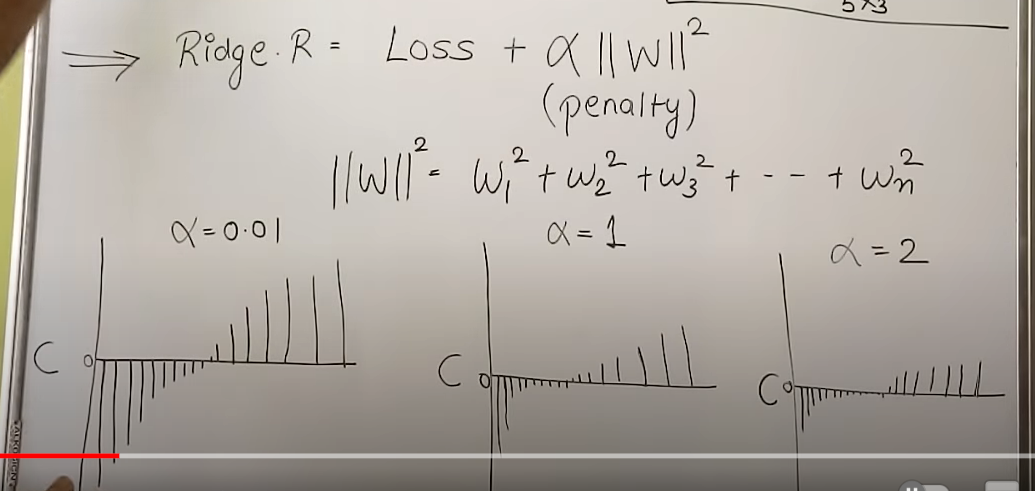 5×3
⟹ Ridge.R = Loss + α ||W||²
(penalty)
||W||² = W₁² + W₂² + W₃² + - - - + Wₙ²
α = 0.01
α = 1
α = 2
C 0
C 0
C 0